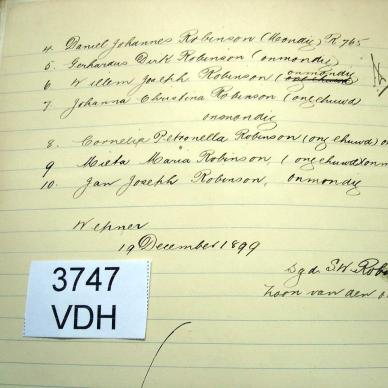 4. Daniel Johannes Robinson (Mondig) R 765
5. Gerhardus Dirk Robinson (onmondig
6 Willem Joseph Robinson (onmondig
7 Johanna Christina Robinson (ongehuwd
onmondig
8. Cornelia Petronella Robinson (ongehuwd) on
9 Mieta Maria Robinson, (ongehuwd) onm
10. Jan Joseph Robinson, onmondig
Wepener
19 December 1899
Sgd. S.W. Robi
Zoon van den o
3747
VDH